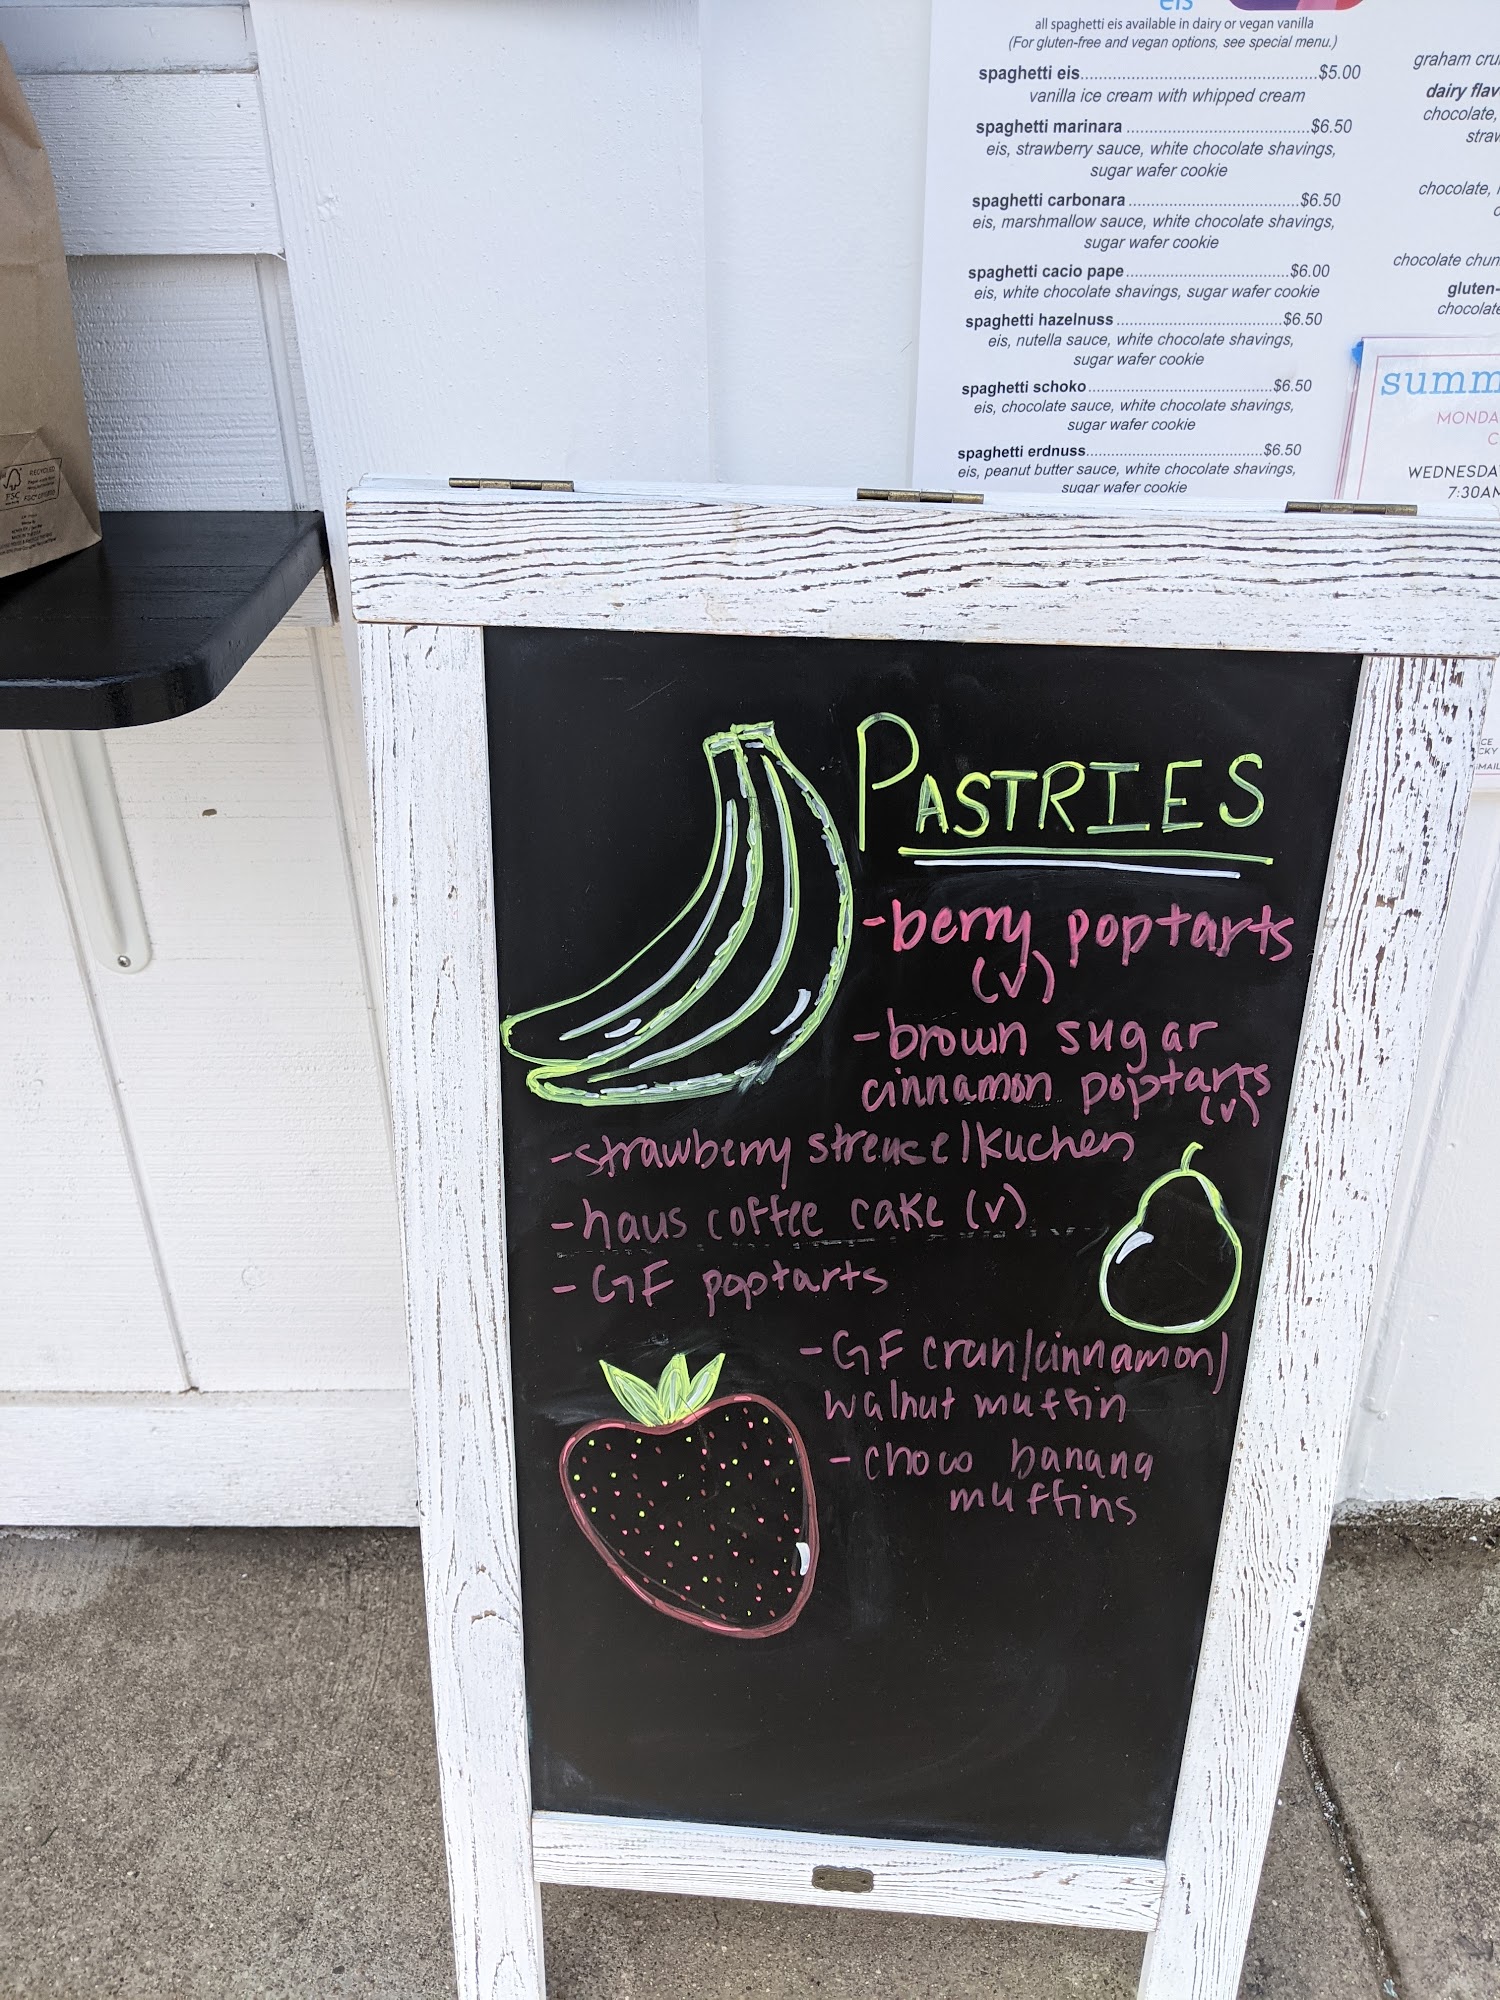 eis
all spaghetti eis available in dairy or vegan vanilla
(For gluten-free and vegan options, see special menu.)
spaghetti eis $5.00
vanilla ice cream with whipped cream
spaghetti marinara $6.50
eis, strawberry sauce, white chocolate shavings,
sugar wafer cookie
spaghetti carbonara $6.50
eis, marshmallow sauce, white chocolate shavings,
sugar wafer cookie
spaghetti cacio pape $6.00
eis, white chocolate shavings, sugar wafer cookie
spaghetti hazelnuss $6.50
eis, nutella sauce, white chocolate shavings,
sugar wafer cookie
spaghetti schoko $6.50
eis, chocolate sauce, white chocolate shavings,
sugar wafer cookie
spaghetti erdnuss $6.50
eis, peanut butter sauce, white chocolate shavings,
sugar wafer cookie
graham
dairy
chocolate,
chocolate,
chocolate
gluten-
WEDNESDA
7:30AM
RECYCLED
FSC
PASTRIES
-berry poptarts
(v)
-brown sugar
cinnamon poptarts
(v)
-strawberry streusel/kuchen
-haus coffee cake (v)
- GF poptarts
- GF cran/cinnamon/
walnut muffin
- choco banana
muffins